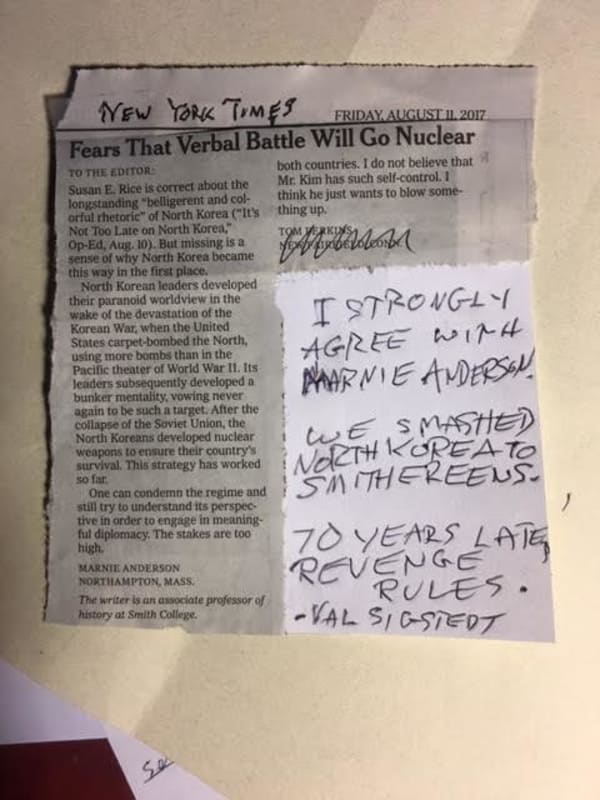 NEW YORK TIMES
FRIDAY, AUGUST 11, 2017
Fears That Verbal Battle Will Go Nuclear
TO THE EDITOR:
Susan E. Rice is correct about the
longstanding "belligerent and col-
orful rhetoric" of North Korea ("It's
Not Too Late on North Korea,"
Op-Ed, Aug. 10). But missing is a
sense of why North Korea became
this way in the first place.
North Korean leaders developed
their paranoid worldview in the
wake of the devastation of the
Korean War, when the United
States carpet-bombed the North,
using more bombs than in the
Pacific theater of World War II. Its
leaders subsequently developed a
bunker mentality, vowing never
again to be such a target. After the
collapse of the Soviet Union, the
North Koreans developed nuclear
weapons to ensure their country's
survival. This strategy has worked
so far.
One can condemn the regime and
still try to understand its perspec-
tive in order to engage in meaning-
ful diplomacy. The stakes are too
high.
MARNIE ANDERSON
NORTHAMPTON, MASS.
The writer is an associate professor of
history at Smith College.
both countries. I do not believe that
Mr. Kim has such self-control. I
think he just wants to blow some-
thing up.
TOM PERKINS
I STRONGLY
AGREE WITH
MARNIE ANDERSON.
WE SMASHED
NORTH KOREA TO
SMITHEREENS.
70 YEARS LATE,
REVENGE
RULES.
-VAL SIGSTEDT